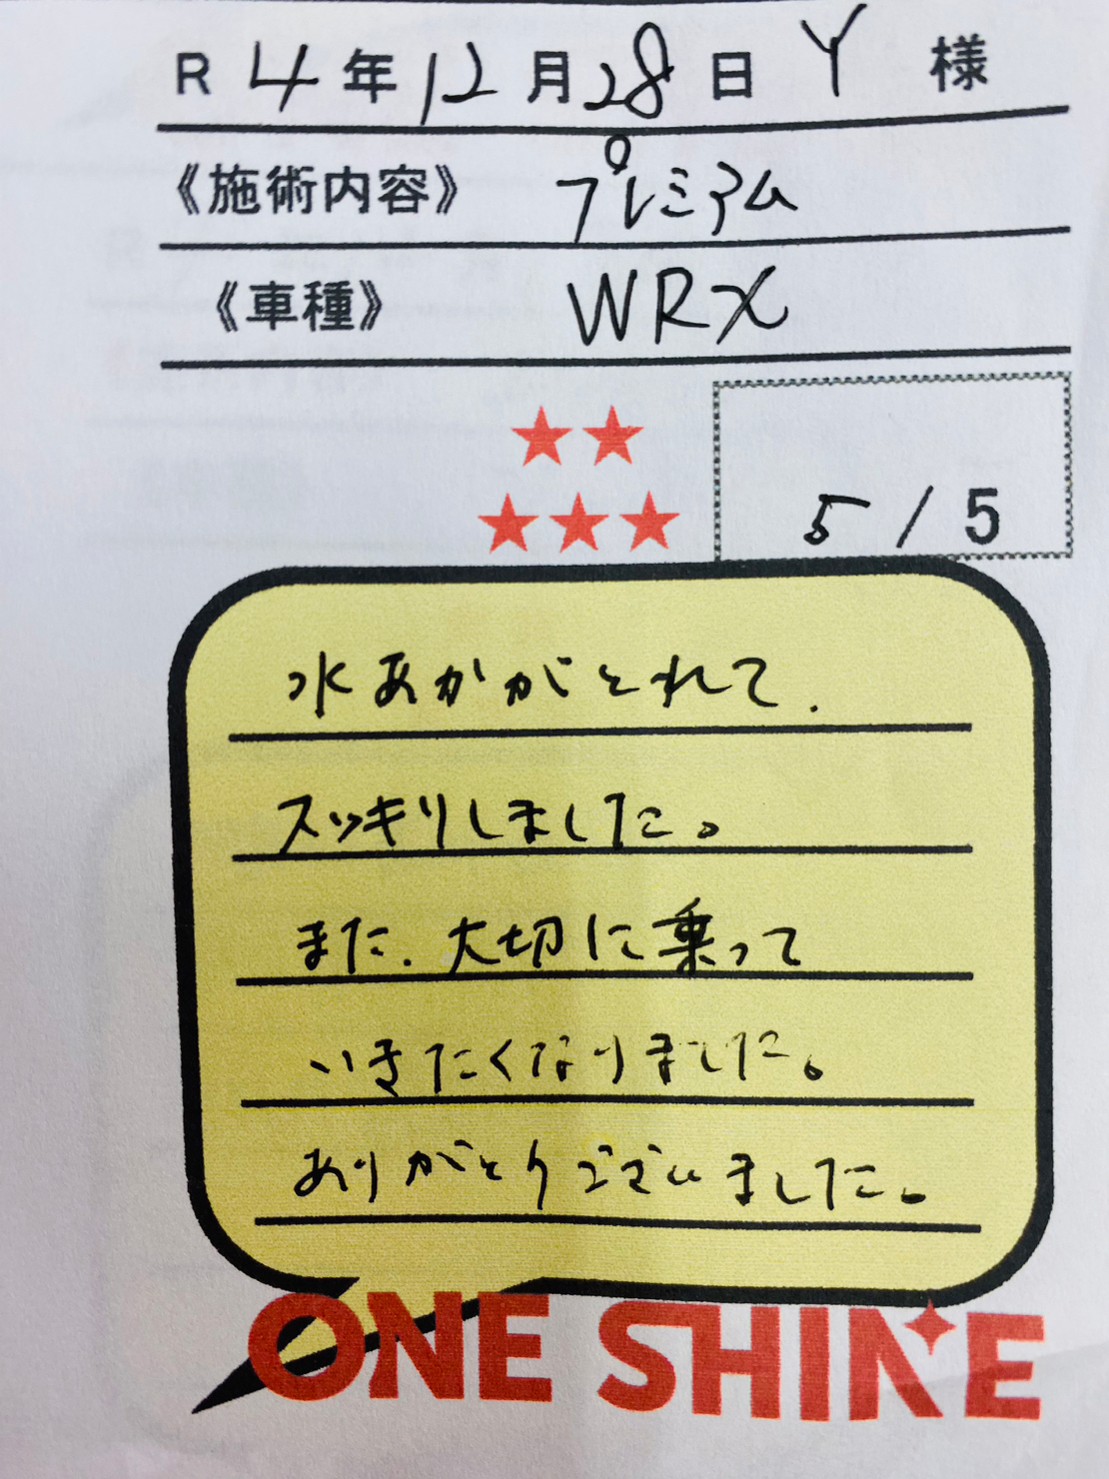 R 4年12月28日 Y 様
《施術内容》 プレミアム
《車種》 WRX
★★
★★★
5/5
水あかがとれて、
スッキリしました。
また、大切に乗って
いきたくなりました。
ありがとうございました。
ONE SHINE